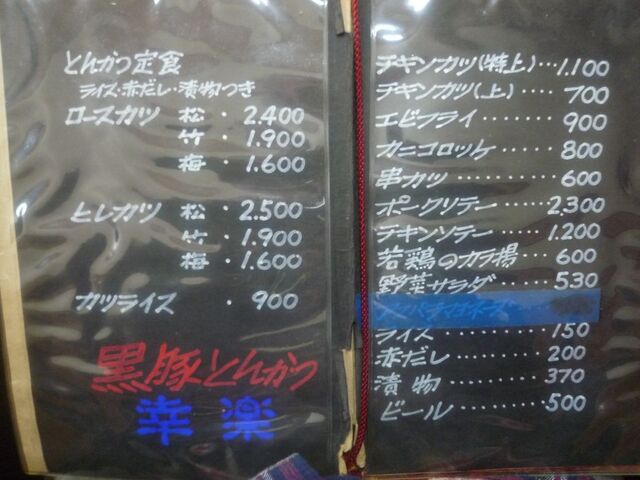 とんかつ定食
ライス・赤だし・漬物つき
ロースカツ 松・2.400
竹・1.900
梅・1.600
ヒレカツ 松・2.500
竹・1.900
梅・1.600
カツライス・900
黒豚とんかつ
幸楽
チキンカツ(特上)…1.100
チキンカツ(上)……700
エビフライ………900
カニコロッケ………800
串カツ………600
ポークソテー………2,300
チキンソテー………1.200
若鶏のカラ揚……600
野菜サラダ………530
ライス………150
赤だし………200
漬物………370
ビール………500